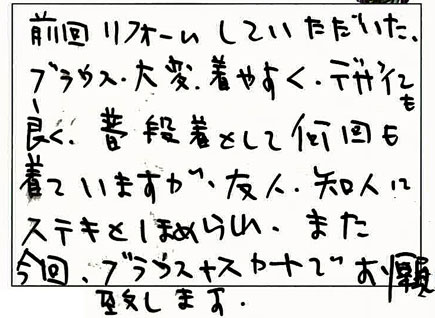 前回リフォームしていただいた、
ブラウス・大変、着やすく・デザインも
良く、普段着として何回も
着ていますが、友人・知人に
ステキとほめられ、また
今回、ブラウス+スカートでお願
致します。